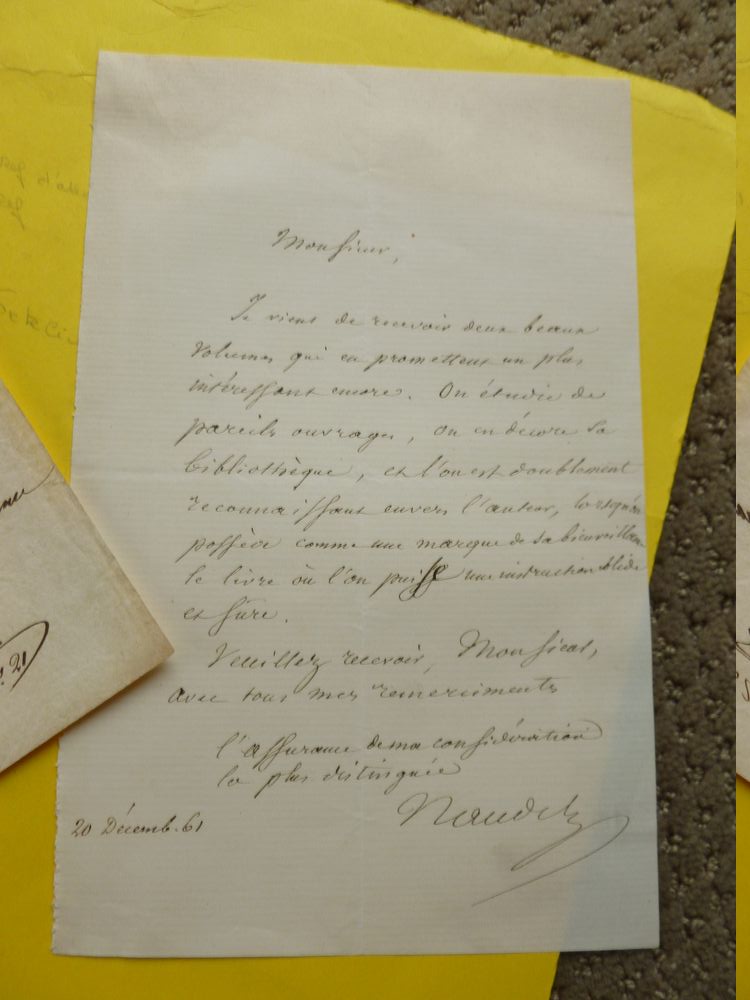 Monsieur,
Je viens de recevoir deux beaux
volumes qui en promettent un plus
intéressant encore. On étudie de
pareils ouvrages, on en décore sa
bibliothèque, et l'on est doublement
reconnaissant envers l'auteur, lorsqu'on
possède comme une marque de sa bienveillance
le livre où l'on puise une instruction solide
et sûre.
Veuillez recevoir, Monsieur,
avec tous mes remerciments
l'assurance de ma considération
la plus distinguée
Naudet
20 Décemb. 61
21